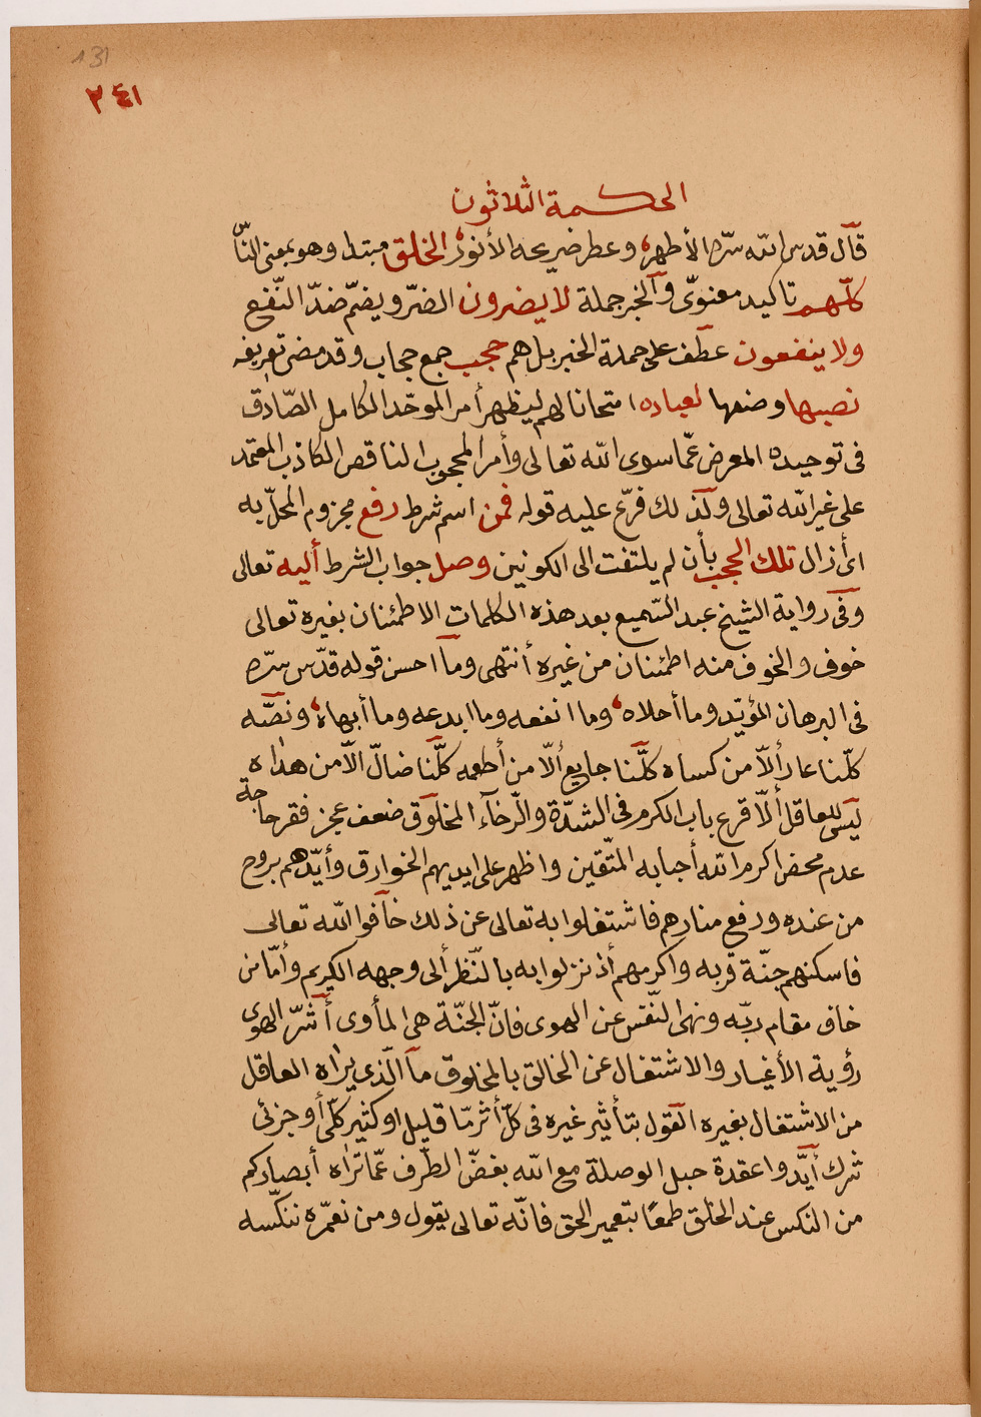 131
٢٤١
الحكمة الثلاثون
قال قدس الله سرّه الأطهر، وعطر ضريحه الأنور، الخلق مبتدا وهو بمعنى النّا
كلّهم تاكيد معنوىّ والخبر جملة لا يضرون الضرّ ويضمّ ضدّ النّفع
ولا ينفعون عطف على جملة الخبر بل هم حجب جمع حجاب وقد مضى تعريفه
نصبها وضعها لعباده امتحانا لهم ليظهر أمر الموحّد الكامل الصّادق
فى توحيده المعرض عمّا سوى الله تعالى وأمر المحجوب الناقص الكاذب المعتمد
على غير الله تعالى ولذلك فرّع عليه قوله فمن اسم شرط رفع مجزوم المحلّ به
اى أزال تلك الحجب بأن لم يلتفت الى الكونين وصل جواب الشرط أليه تعالى
وفى رواية الشيخ عبد السّميع بعد هذه الكلمات الاطمئنان بغيره تعالى
خوف والخوف منه اطمئنان من غيره أنتهى وما احسن قوله قدّس سرّه
فى البرهان المؤيّد وما أحلاه، وما انفعه وما ابدعه وما أبهاه، ونصّه
كلّنا عار ألاّ من كساه كلّنا جايع ألاّ من أطعمه كلّنا ضالّ الاّ من هداه
ليس للعاقل ألاّ قرع باب الكرم فى الشدّة والرّخاء المخلوق ضعف عجز فقر حاجة
عدم محض اكرم الله أحبابه المتّقين واظهر على ايديهم الخوارق وأيّدهم بروح
من عنده ورفع منارهم فاشتغلوا به تعالى عن ذلك خافوا الله تعالى
فاسكنهم جنّة قربه واكرمهم أذ نزلوا به بالنّظر ألى وجهه الكريم وأمّا من
خاف مقام ربّه ونهى النّفس عن الهوى فانّ الجنّة هى المأوى أشرّ الهوى
رؤية الأغيار والاشتغال عن الخالق بالمخلوق ما الّذى يراه العاقل
من الاشتغال بغيره القول بتأثير غيره فى كلّ أثر ممّا قليل او كثير كلّى أو جزئى
شرك أيّدوا عقدة حبل الوصلة مع الله بغضّ الطّرف عمّا تراه أبصاركم
من النكس عند الخلق طمعًا بتعمير الحق فانّه تعالى يقول ومن نعمّره ننكّسه